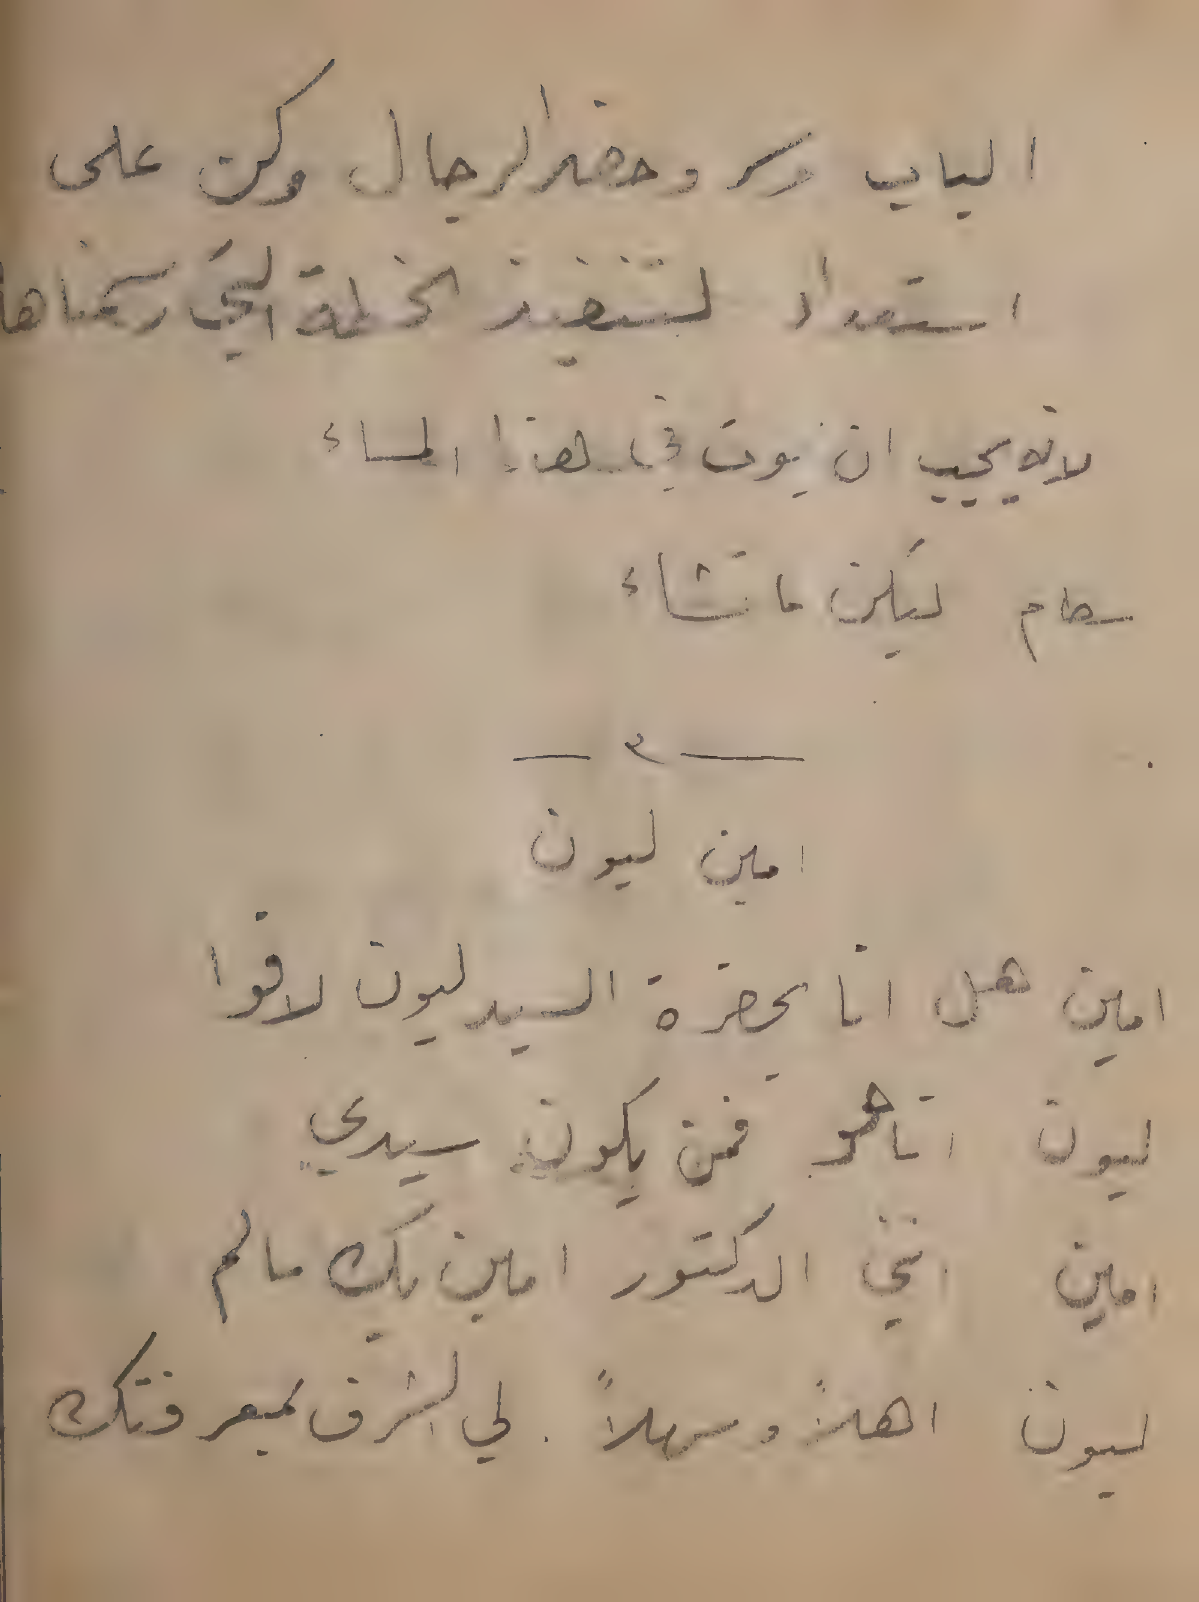 الباب وسر وحضر الرجال وكن على
استعداد لتنفيذ الخطة التي رسمناها
لانه يجب ان يموت في هذا المساء
سهام ليكن ما تشاء
٣
امين ليون
امين هل انا بحضرة السيد ليون لافوا
ليون انا هو فمن يكون سيدي
امين انني الدكتور امين بك سالم
ليون اهلاً وسهلاً . لي الشرف بمعرفتك